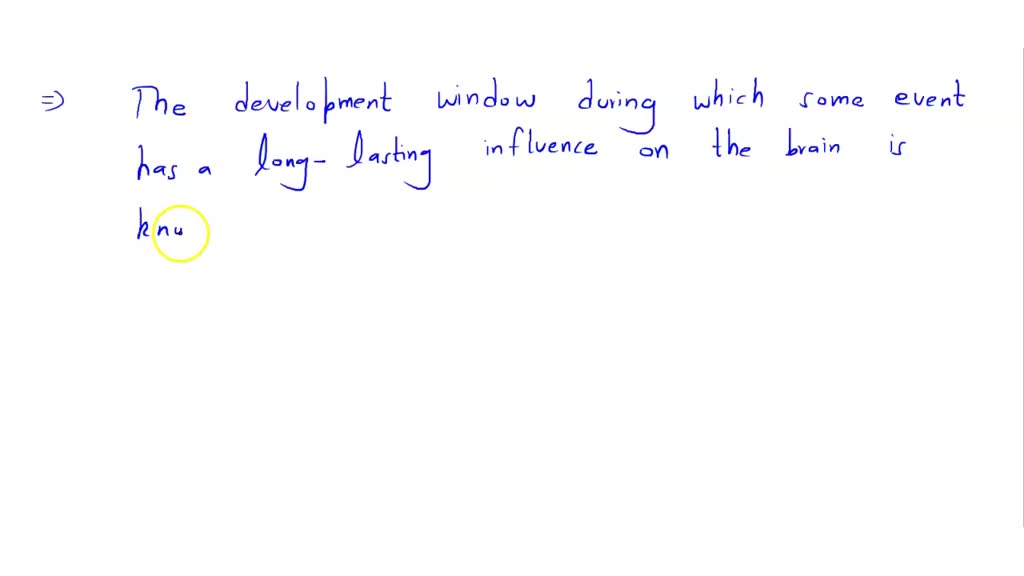 ⇒ The development window during which some event
has a long-lasting influence on the brain is
kno